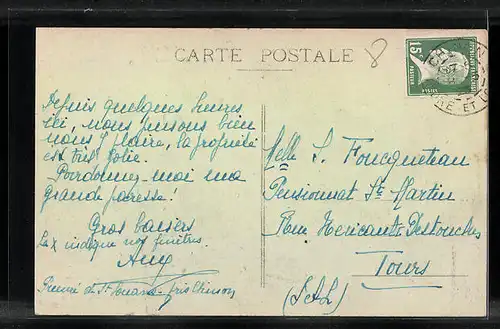 CARTE POSTALE
8
15
POSTES
Depuis quelques heures
ici, nous pensons bien
nous plaire, la propriété
est très jolie.
Pardonnez-moi ma
grande paresse!
Gros baisers
La x indique nos fenêtres.
près Chinon
Melle S. Foucqueteau
Pensionnat St Martin
Rue Néricault-Destouches
Tours
(I & L)
ET LO